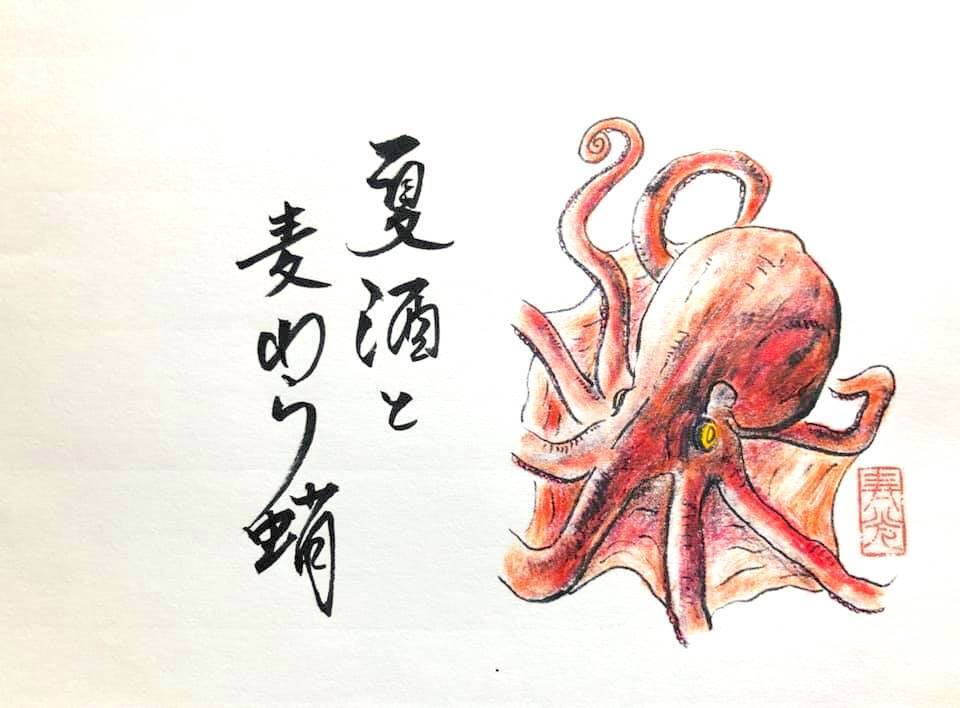 夏酒と
麦わら蛸